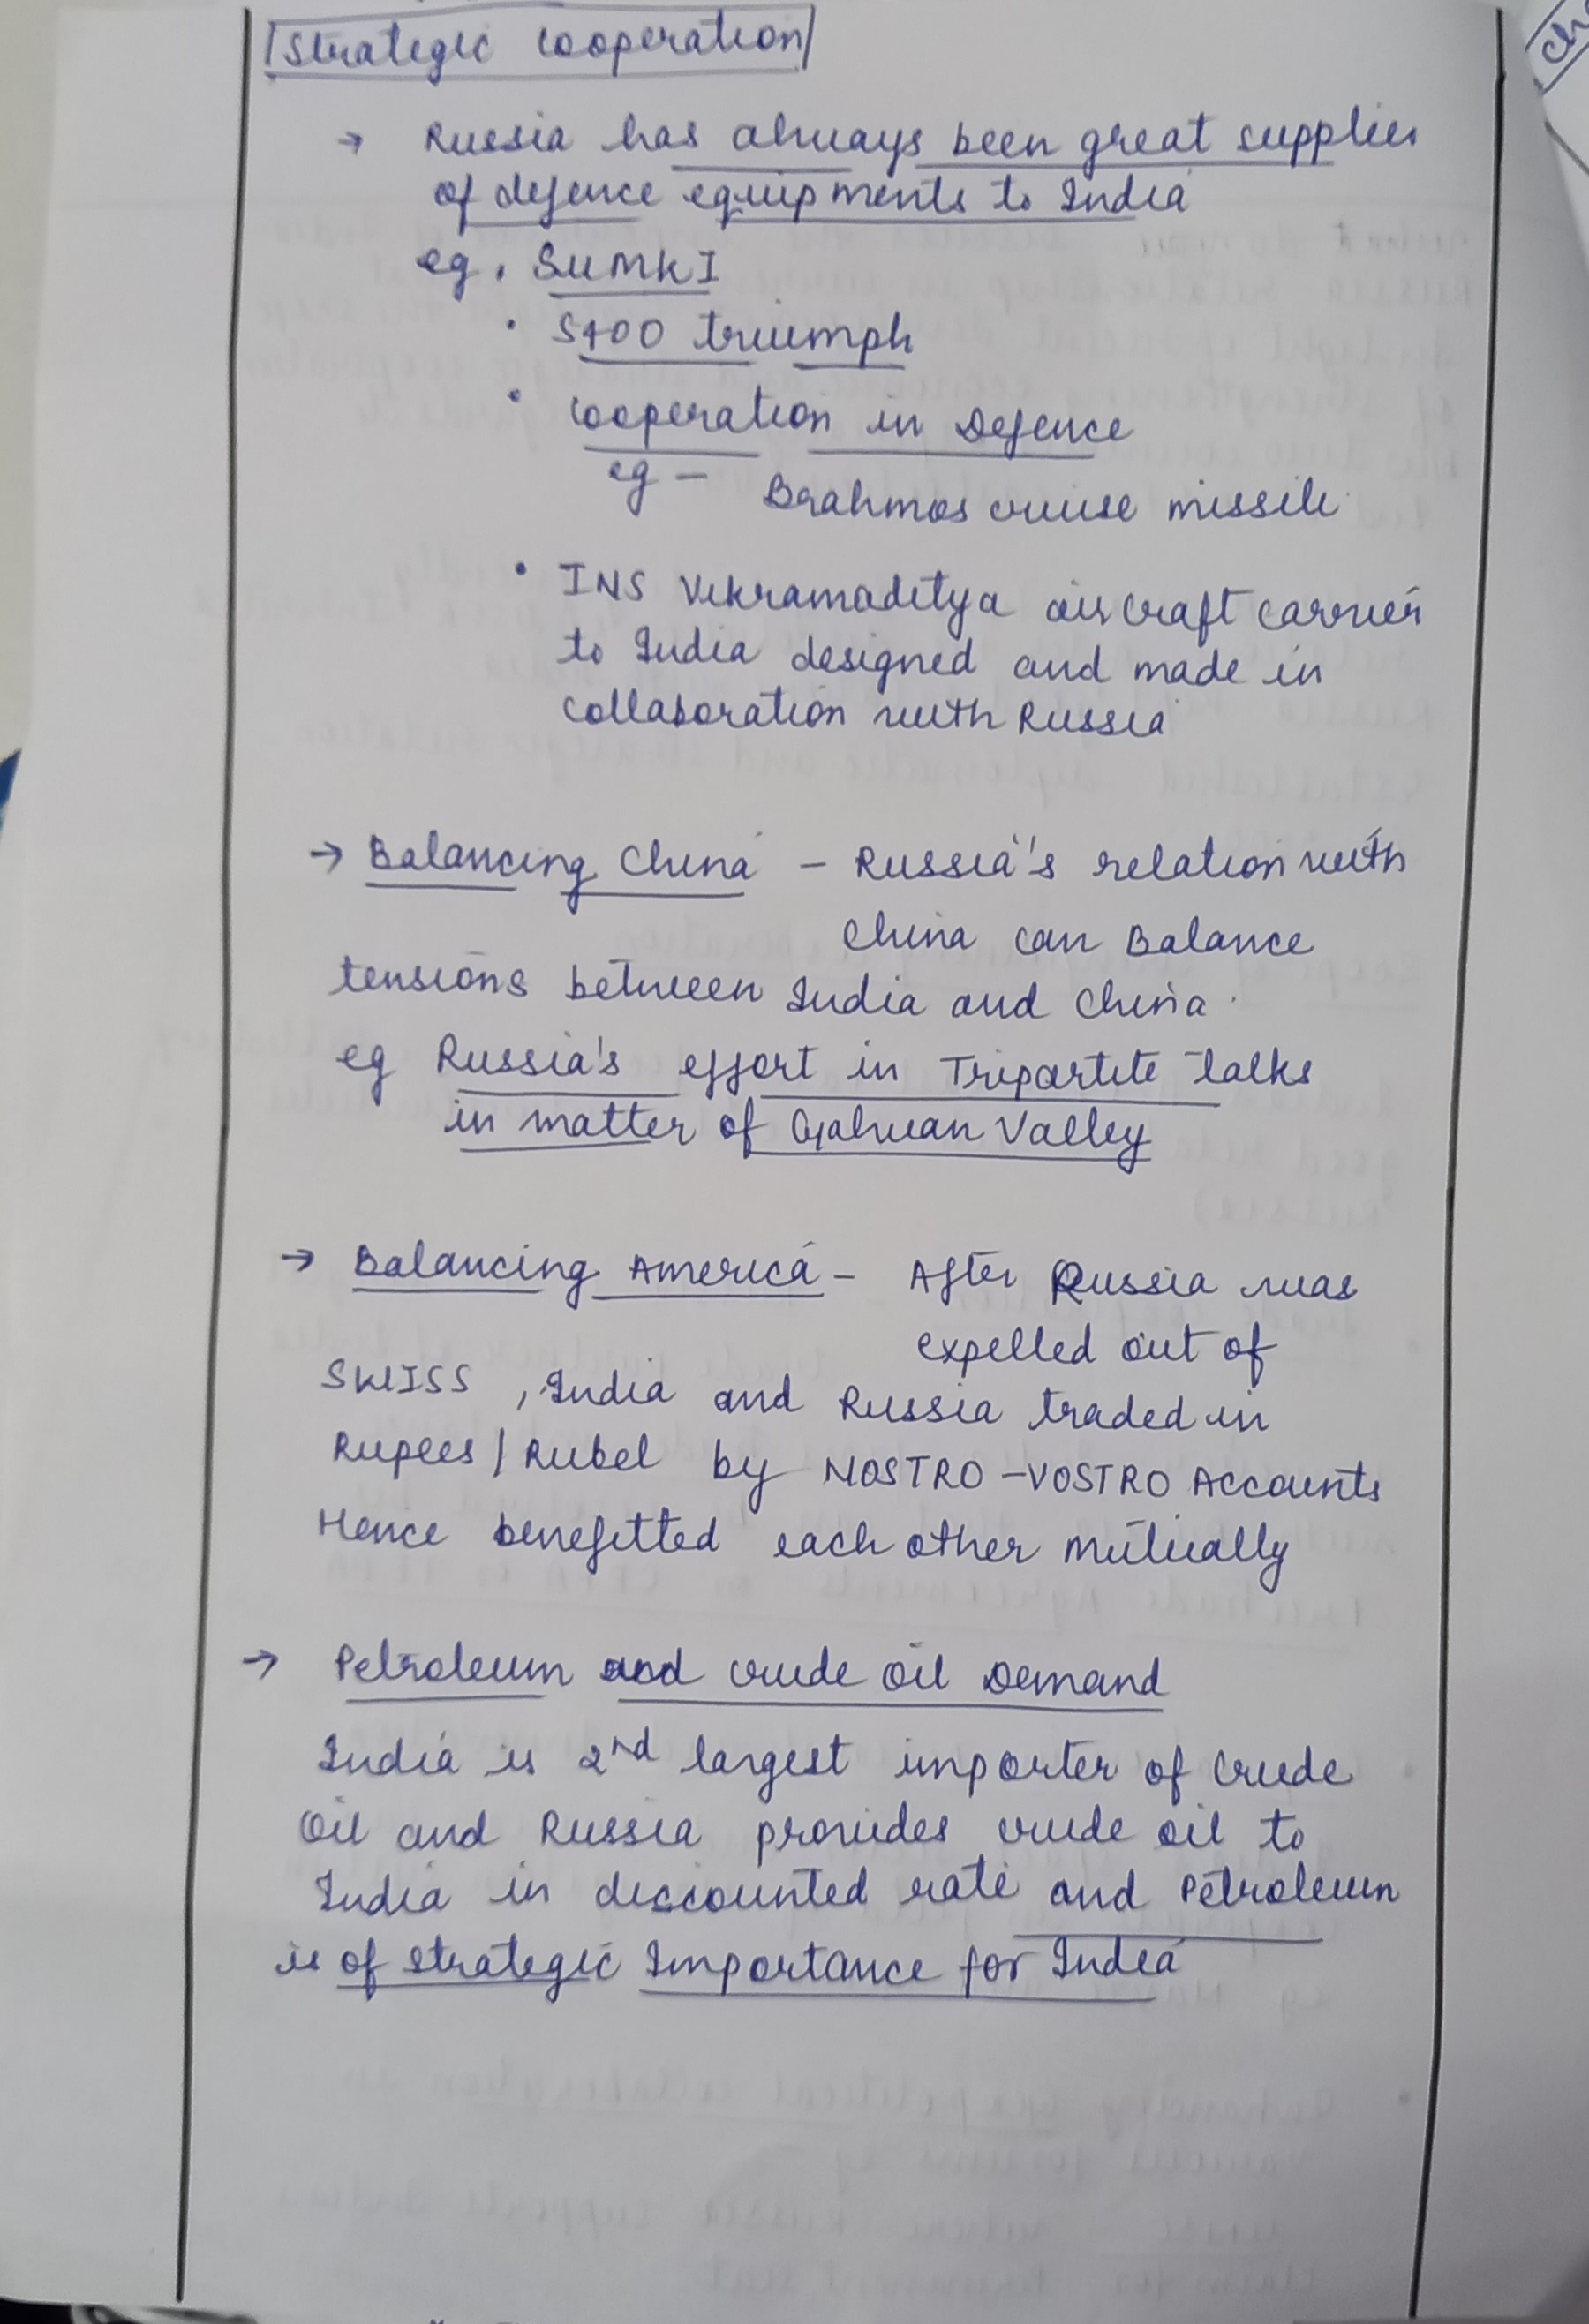 Strategic cooperation
→ Russia has always been great supplier
of defence equipments to India
eg • SUMKI
• S400 triumph
• cooperation in Defence
eg - Brahmos cruise missile
• INS Vikramaditya aircraft carrier
to India designed and made in
collaboration with Russia
→ Balancing China - Russia's relation with
China can Balance
tensions between India and China.
eg Russia's effort in Tripartite talks
in matter of Galwan Valley
→ Balancing America - After Russia was
expelled out of
SWISS, India and Russia traded in
Rupees / Rubel by NOSTRO - VOSTRO Accounts
Hence benefitted each other mutually
→ Petroleum and crude oil Demand
India is 2nd largest importer of crude
oil and Russia provides crude oil to
India in discounted rate and Petroleum
is of strategic Importance for India